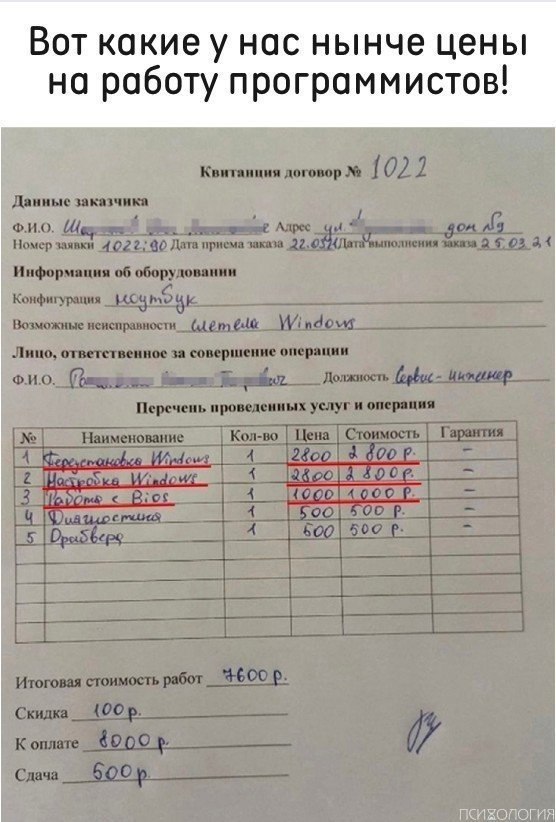 Вот какие у нас нынче цены
на работу программистов!
Квитанция договор № 1022
Данные заказчика
Ф.И.О. Адрес ул. дом №9
Номер заявки 1022;90 Дата приема заказа Дата выполнения заказа 25.03.21
Информация об оборудовании
Конфигурация ноутбук
Возможные неисправности слетела Windows
Лицо, ответственное за совершение операции
Ф.И.О. Должность Сервис-инженер
Перечень проведенных услуг и операция
№ Наименование Кол-во Цена Стоимость Гарантия
1 Переустановка Windows 1 2800 2 800 р. –
2 Настройка Windows 1 2800 2 800 р. –
3 Работа с Bios 1 1000 1 000 р. –
4 Диагностика 1 500 500 р. –
5 Драйвера 1 500 500 р. –
Итоговая стоимость работ 7600 р.
Скидка 100 р.
К оплате 8000 р.
Сдача 500 р.
ПСИХОЛОГИЯ